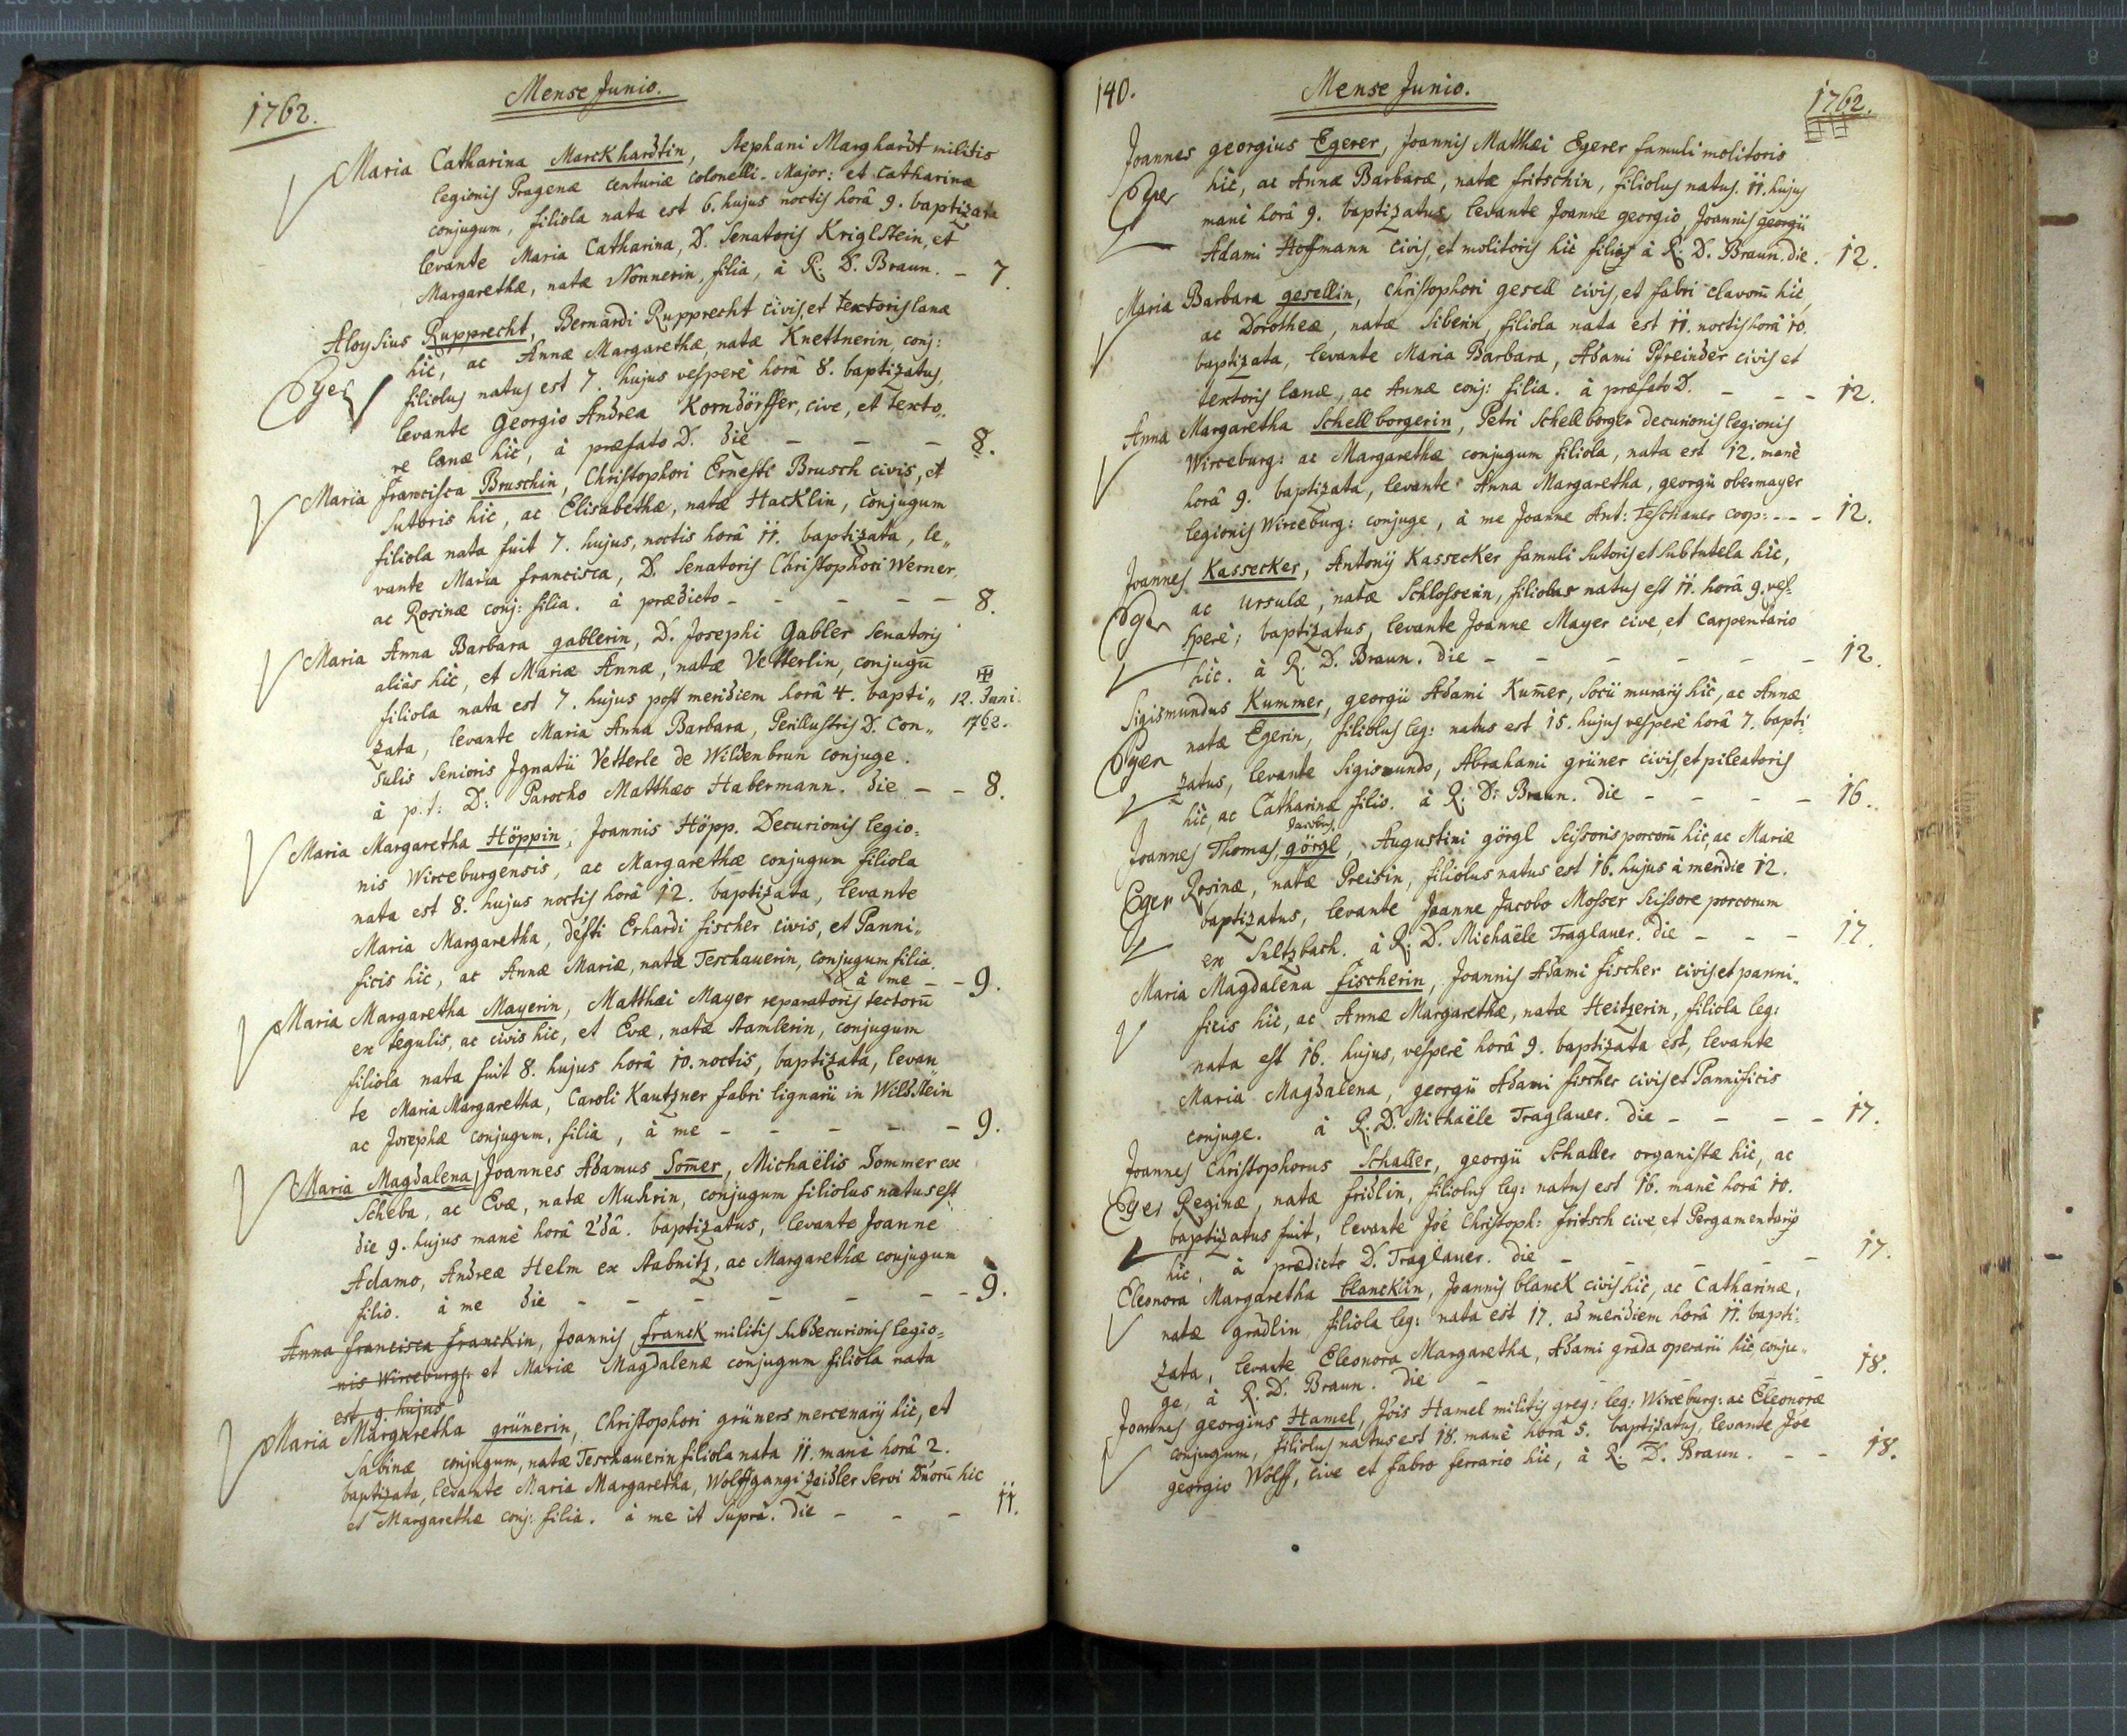 1762.
Mense Junio.
Maria Catharina Marckhardtin, Stephani Marghardt militis
legionis Pragenæ centuriæ colonelli-Major: et Catharinæ
conjugum, filiola nata est 6. hujus noctis horâ 9. baptizata
levante Maria Catharina, D. Senatoris Kriglstein, et
Margarethæ, natæ Nonnerin, filia, à R. D. Braun. - 7.
Aloysius Rupprecht, Bernardi Rupprecht civis, et textoris lanæ
hic, ac Annæ Margarethæ, natæ Knettnerin, conj:
Eger
filiolus natus est 7. hujus vesperè horâ 8. baptizatus,
levante Georgio Andrea Korndörffer, cive, et texto-
re lanæ hic, à præfato D. die - - - 8.
Maria Francisca Bruschin, Christophori Ernesti Brusch civis, et
Sutoris hic, ac Elisabethæ, natæ Hacklin, conjugum
filiola nata fuit 7. hujus, noctis horâ 11. baptizata, le„
vante Maria Francisca, D. Senatoris Christophori Werner,
ac Rosinæ conj: filia. à prædicto - - - - - 8.
Maria Anna Barbara gablerin, D. Josephi Gabler Senatoris
aliàs hic, et Mariæ Annæ, natæ Vetterlin, conjugū
filiola nata est 7. hujus post meridiem horâ 4. bapti„ 12. Juni.
zata, levante Maria Anna Barbara, Perillustris D. Con„ 1762.
sulis Senioris Ignatii Vetterle de Wildenbrun conjuge.
à p.t: D: Parocho Matthæo Habermann. die - - 8.
Maria Margaretha Höppin, Joannis Höpp. Decurionis legio-
nis Wirceburgensis, ac Margarethæ conjugum filiola
nata est 8. hujus noctis horâ 12. baptizata, levante
Maria Margaretha, defti Erhardi fischer civis, et Panni„
ficis hic, ac Annæ Mariæ, natæ Teschauerin, conjugum filia.
à me - - 9.
Maria Margaretha Mayerin, Matthæi Mayer reparatoris tectorū
ex tegulis, ac civis hic, et Evæ, natæ Stamlerin, conjugum
filiola nata fuit 8. hujus horâ 10. noctis, baptizata, levan„
te Maria Margaretha, Caroli Kautzner fabri lignarii in Wildstein
ac Josephæ conjugum, filia, à me - - - - - 9.
Maria Magdalena, Joannes Adamus Som̄er, Michaëlis Sommer ex
Scheba, ac Evæ, natæ Muhrin, conjugum filiolus natus est
die 9. hujus manè horâ 2'dâ. baptizatus, levante Joanne
Adamo, Andreæ Helm ex Stabnitz, ac Margarethæ conjugum
filio. à me die - - - - - - - 9.
Anna francisca franckin, Joannis franck militis Subdecurionis legio-
nis Wirceburgs: et Mariæ Magdalenæ conjugum filiola nata
est 9. hujus
Maria Margaretha grünerin, Christophori grüners mercenarij hic, et
Sabinæ conjugum, natæ Teschauerin filiola nata 11. manè horâ 2.
baptizata, levante Maria Margaretha, Wolffgangi Zeidler Servi Dnorū hic
et Margarethæ conj: filia. à me ut Suprà. die - - - 11.
140.
Mense Junio.
1762.
Joannes georgius Egerer, Joannis Matthæi Egerer famuli molitoris
Eger
hic, ac Annæ Barbaræ, natæ fritschin, filiolus natus. 11. hujus
manè horâ 9. baptizatus, levante Joanne georgio, Joannis georgii
Adami Hoffmann civis, et molitoris hic filio, à R. D. Braun. die. 12.
Maria Barbara gesellin, Christophori gesell civis, et fabri clavorū hic,
ac Dorotheæ, natæ Siberin, filiola nata est 11. noctis horâ 10.
baptizata, levante Maria Barbara, Adami Pfreinder civis et
textoris lanæ, ac Annæ conj: filia. à præfato D. - - - 12.
Anna Margaretha Schellborgerin, Petri Schellborger decurionis legionis
Wirceburg: ac Margarethæ conjugum filiola, nata est 12. manè
horâ 9. baptizata, levante Anna Margaretha, georgii obermayer
legionis Wirceburg: conjuge, à me Joanne Ant: Teschauer coop: - - - 12.
Joannes Kassecker, Antonij Kassecker famuli Sutoris et Subtutela hic,
Eger
ac Ursulæ, natæ Schlosserin, filiolus natus est 11. horâ 9. ves-
perè; baptizatus, levante Joanne Mayer cive, et Carpentario
hic. à R. D. Braun. die - - - - - - 12.
Sigismundus Kummer, georgii Adami Kum̄er, Socii murarij hic, ac Annæ
Eger
natæ Egerin, filiolus leg: natus est 15. hujus vesperè horâ 7. bapti-
zatus, levante Sigismundo, Abrahami grüner civis, et pileatoris
hic, ac Catharina filio. à R. D: Braun. die - - - - 16.
Jacobus
Joannes Thomas, görgl, Augustini görgl Scissoris porcorū hic, ac Mariæ
Eger
Rosinæ, natæ Preisin, filiolus natus est 16. hujus à meridie 12.
baptizatus, levante Joanne Jacobo Mosser Scissore porcorum
ex Sultzbach. à R. D. Michaële Traglauer. die - - - 17.
Maria Magdalena fischerin, Joannis Adami fischer civis et panni„
ficis hic, ac Annæ Margarethæ, natæ Heitzerin, filiola leg:
nata est 16. hujus, vesperè horâ 9. baptizata est, levante
Maria Magdalena, georgii Adami fischer civis et Pannificis
conjuge. à R. D. Michaële Traglauer. die - - - - 17.
Joannes Christophorus Schaller, georgii Schaller organistæ hic, ac
Eger
Reginæ, natæ fridlin, filiolus leg: natus est 16. manè horâ 10.
baptizatus fuit, levante Joē Christoph: fritsch cive et Pergamentarij
hic, à prædicto D. Traglauer. die - - - - - 17.
Eleonora Margaretha blancklin, Joannis blanck civis hic, ac Catharinæ,
natæ gradlin, filiola leg: nata est 17. ad meridiem horâ 11. bapti-
zata, levante Eleonora Margaretha, Adami grada operarii hic, conju„
ge, à R. D. Braun. die - - - - 18.
Joannes georgius Hamel, Jōis Hamel militis greg: leg: Wirceburg: ac Eleonoræ
conjugum, filiolus natus est 18. manè horâ 5. baptizatus, levante Jōe
georgio Wolff, cive et fabro ferrario hic, à R. D. Braun. - - 18.